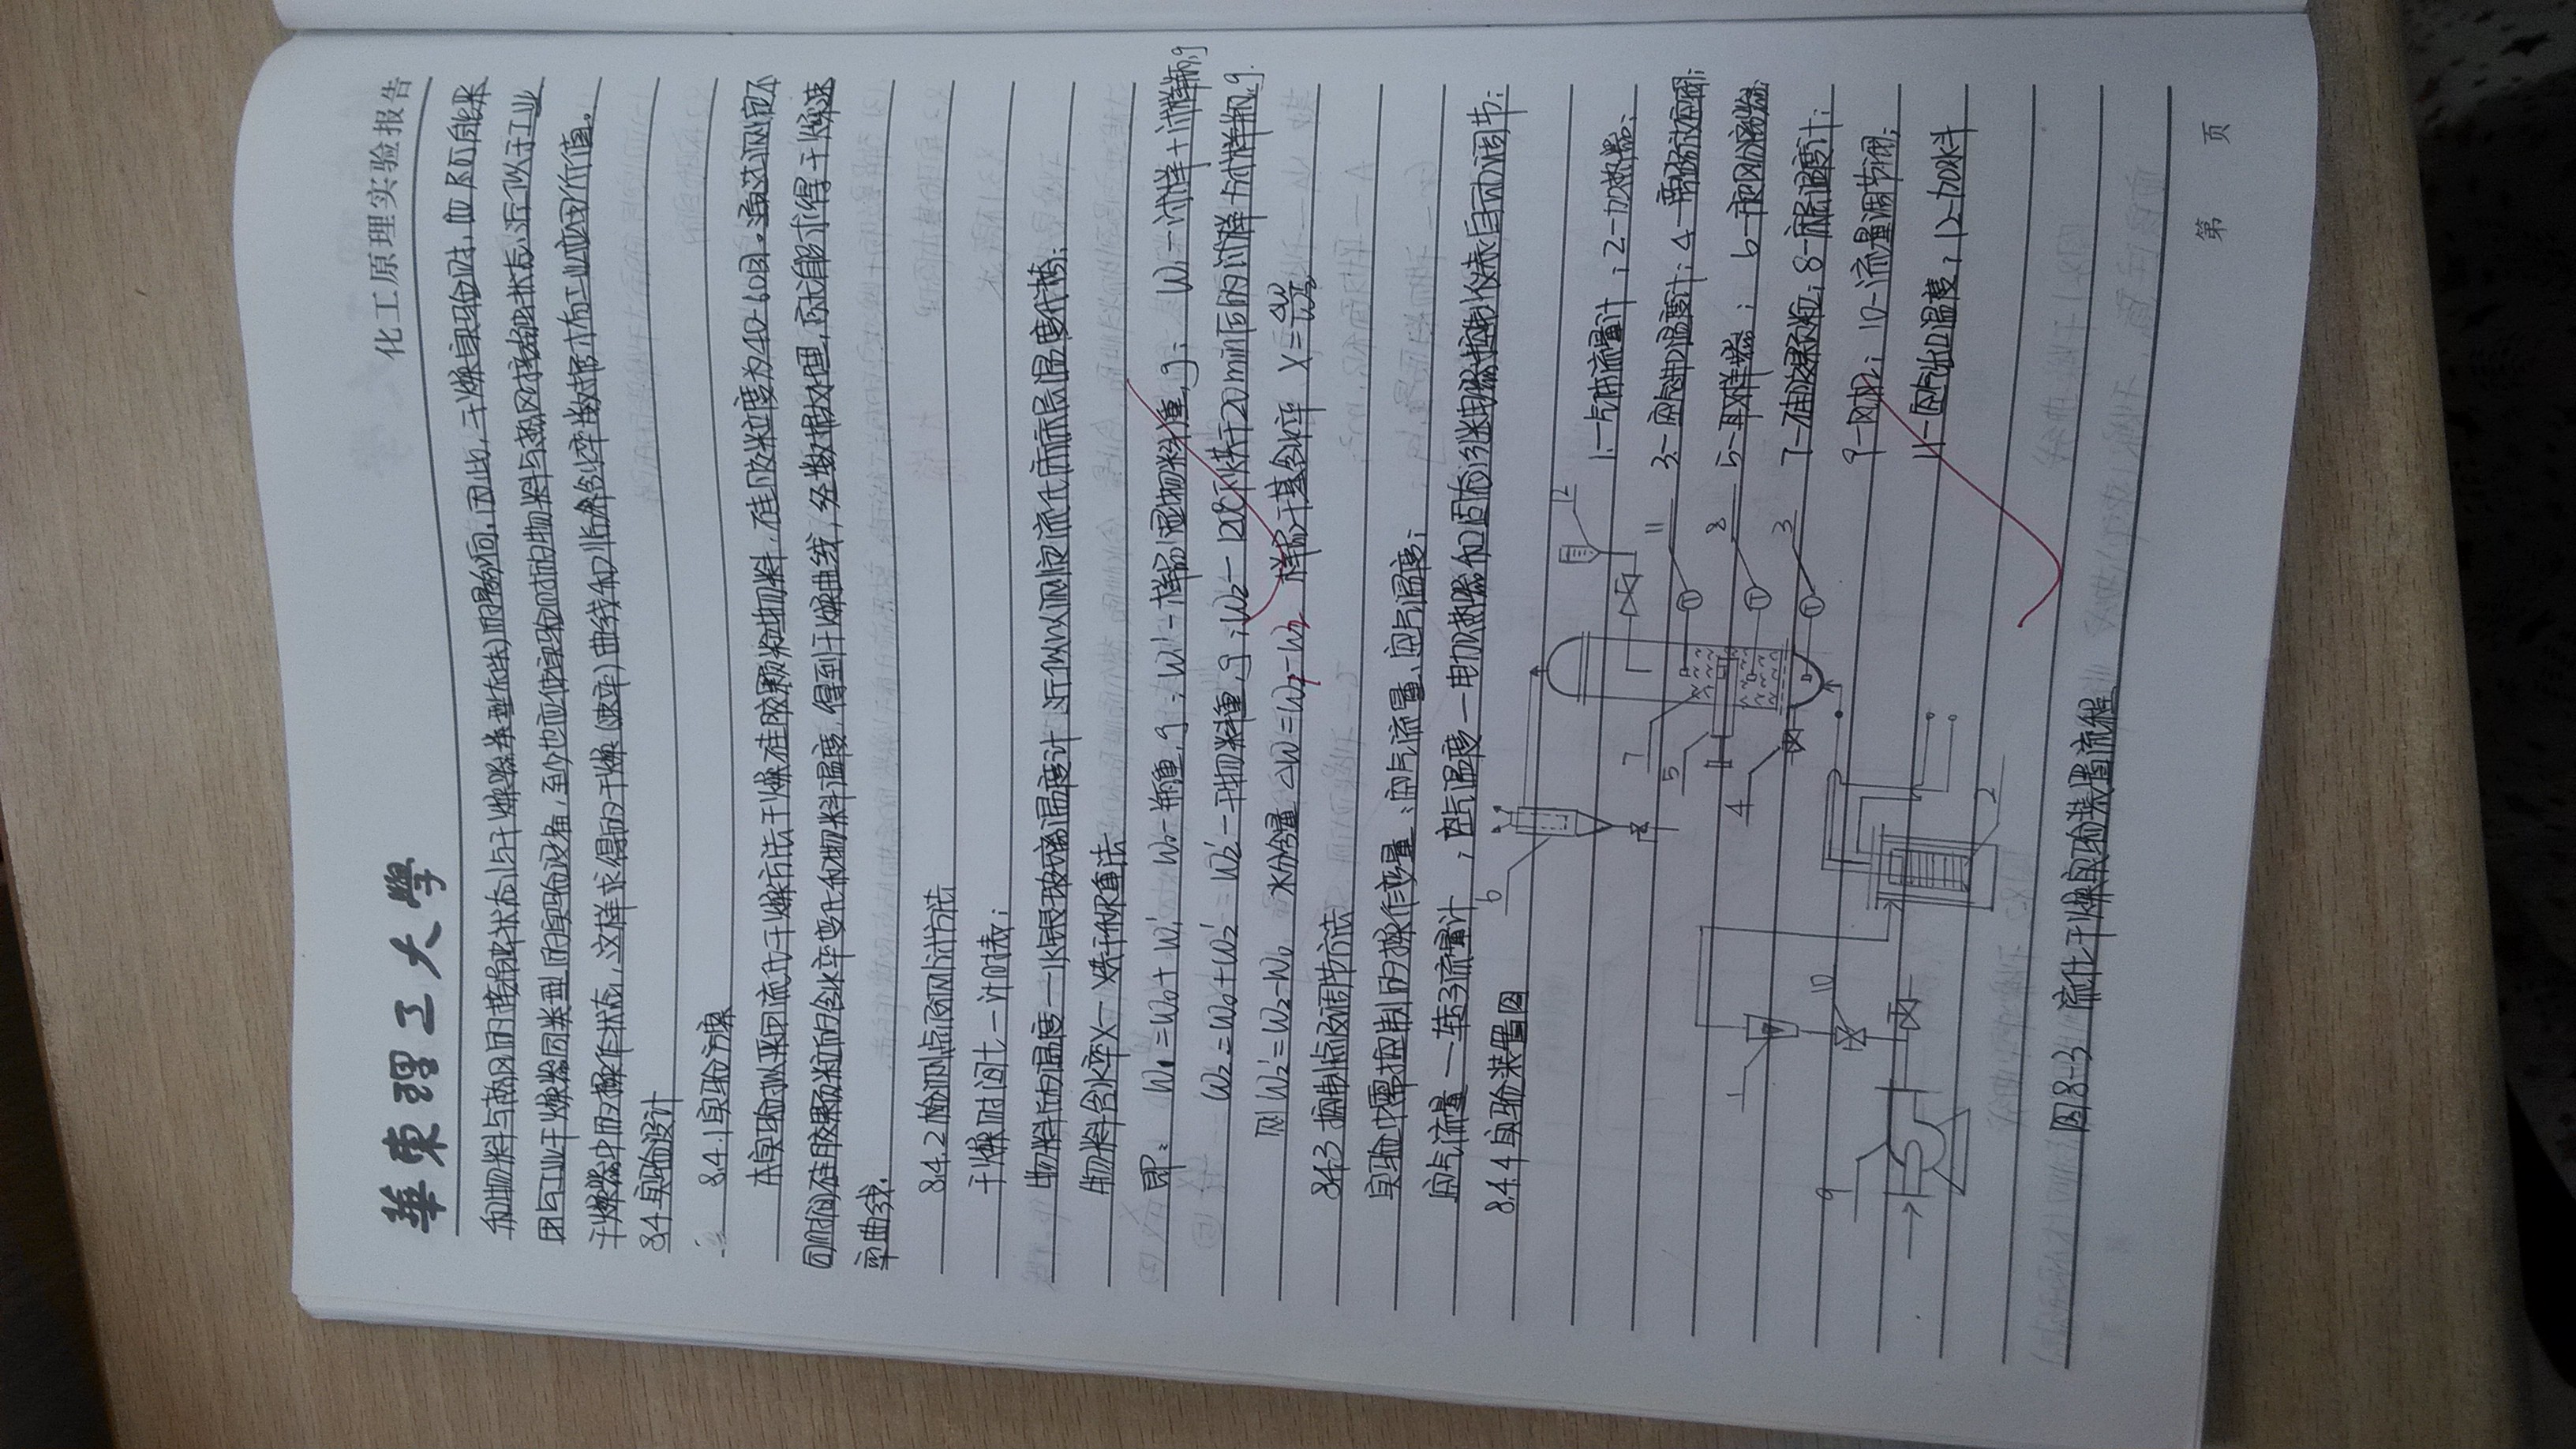 華東理工大學
化工原理实验报告
和物料与热风的接触状态(与干燥器类型有关)的影响,因此,干燥实验时,应尽可能采
用与工业干燥器同类型的实验设备,至少也应使实验时的物料与热风接触状态近似于工业
干燥器中的操作状态,这样求得的干燥(速率)曲线和临界含水率数据才有工业应用价值。
8.4 实验设计
8.4.1 实验方案
本实验拟采用流化干燥方法干燥硅胶颗粒物料,硅胶粒度为40-60目。通过测定不
同时间硅胶颗粒的含水率变化和物料温度,得到干燥曲线,经数据处理,就能求得干燥速
率曲线.
8.4.2 检测点及测试方法
干燥时间t—计时表;
物料的温度—水银玻璃温度计 近似以测定流化床床层温度代替;
物料含水率X— 烘干称重法
即: W₁=W₀+W₁' W₀-瓶重,g; W₁'-样品(湿物料)重,g; W₁-试样+试样瓶,g
W₂=W₀+W₂' W₂'-干物料重,g; W₂-120℃下烘干20min后的试样+试样瓶,g.
则W₂'=W₂-W₀ 水分含量 ΔW=W₁-W₂ 样品干基含水率 X=ΔW/W₂'
8.4.3 控制点及调节方法
实验中需控制的操作变量:空气流量、空气温度;
空气流量—转子流量计 ;空气温度—电加热器和固态继电器控制仪表自动调节;
8.4.4 实验装置图
6
12
1—气体流量计 ;2-加热器;
7
11
3-空气进口温度计; 4-旁路放空阀;
5
8
5-取样器 ; 6-旋风分离器;
4
1
3
7-硅胶颗粒; 8-床层温度计;
9
10
9-风机; 10-流量调节阀;
11-空气出口温度; 12-加水斗
2
图8-3 流化干燥实验装置流程
第 页